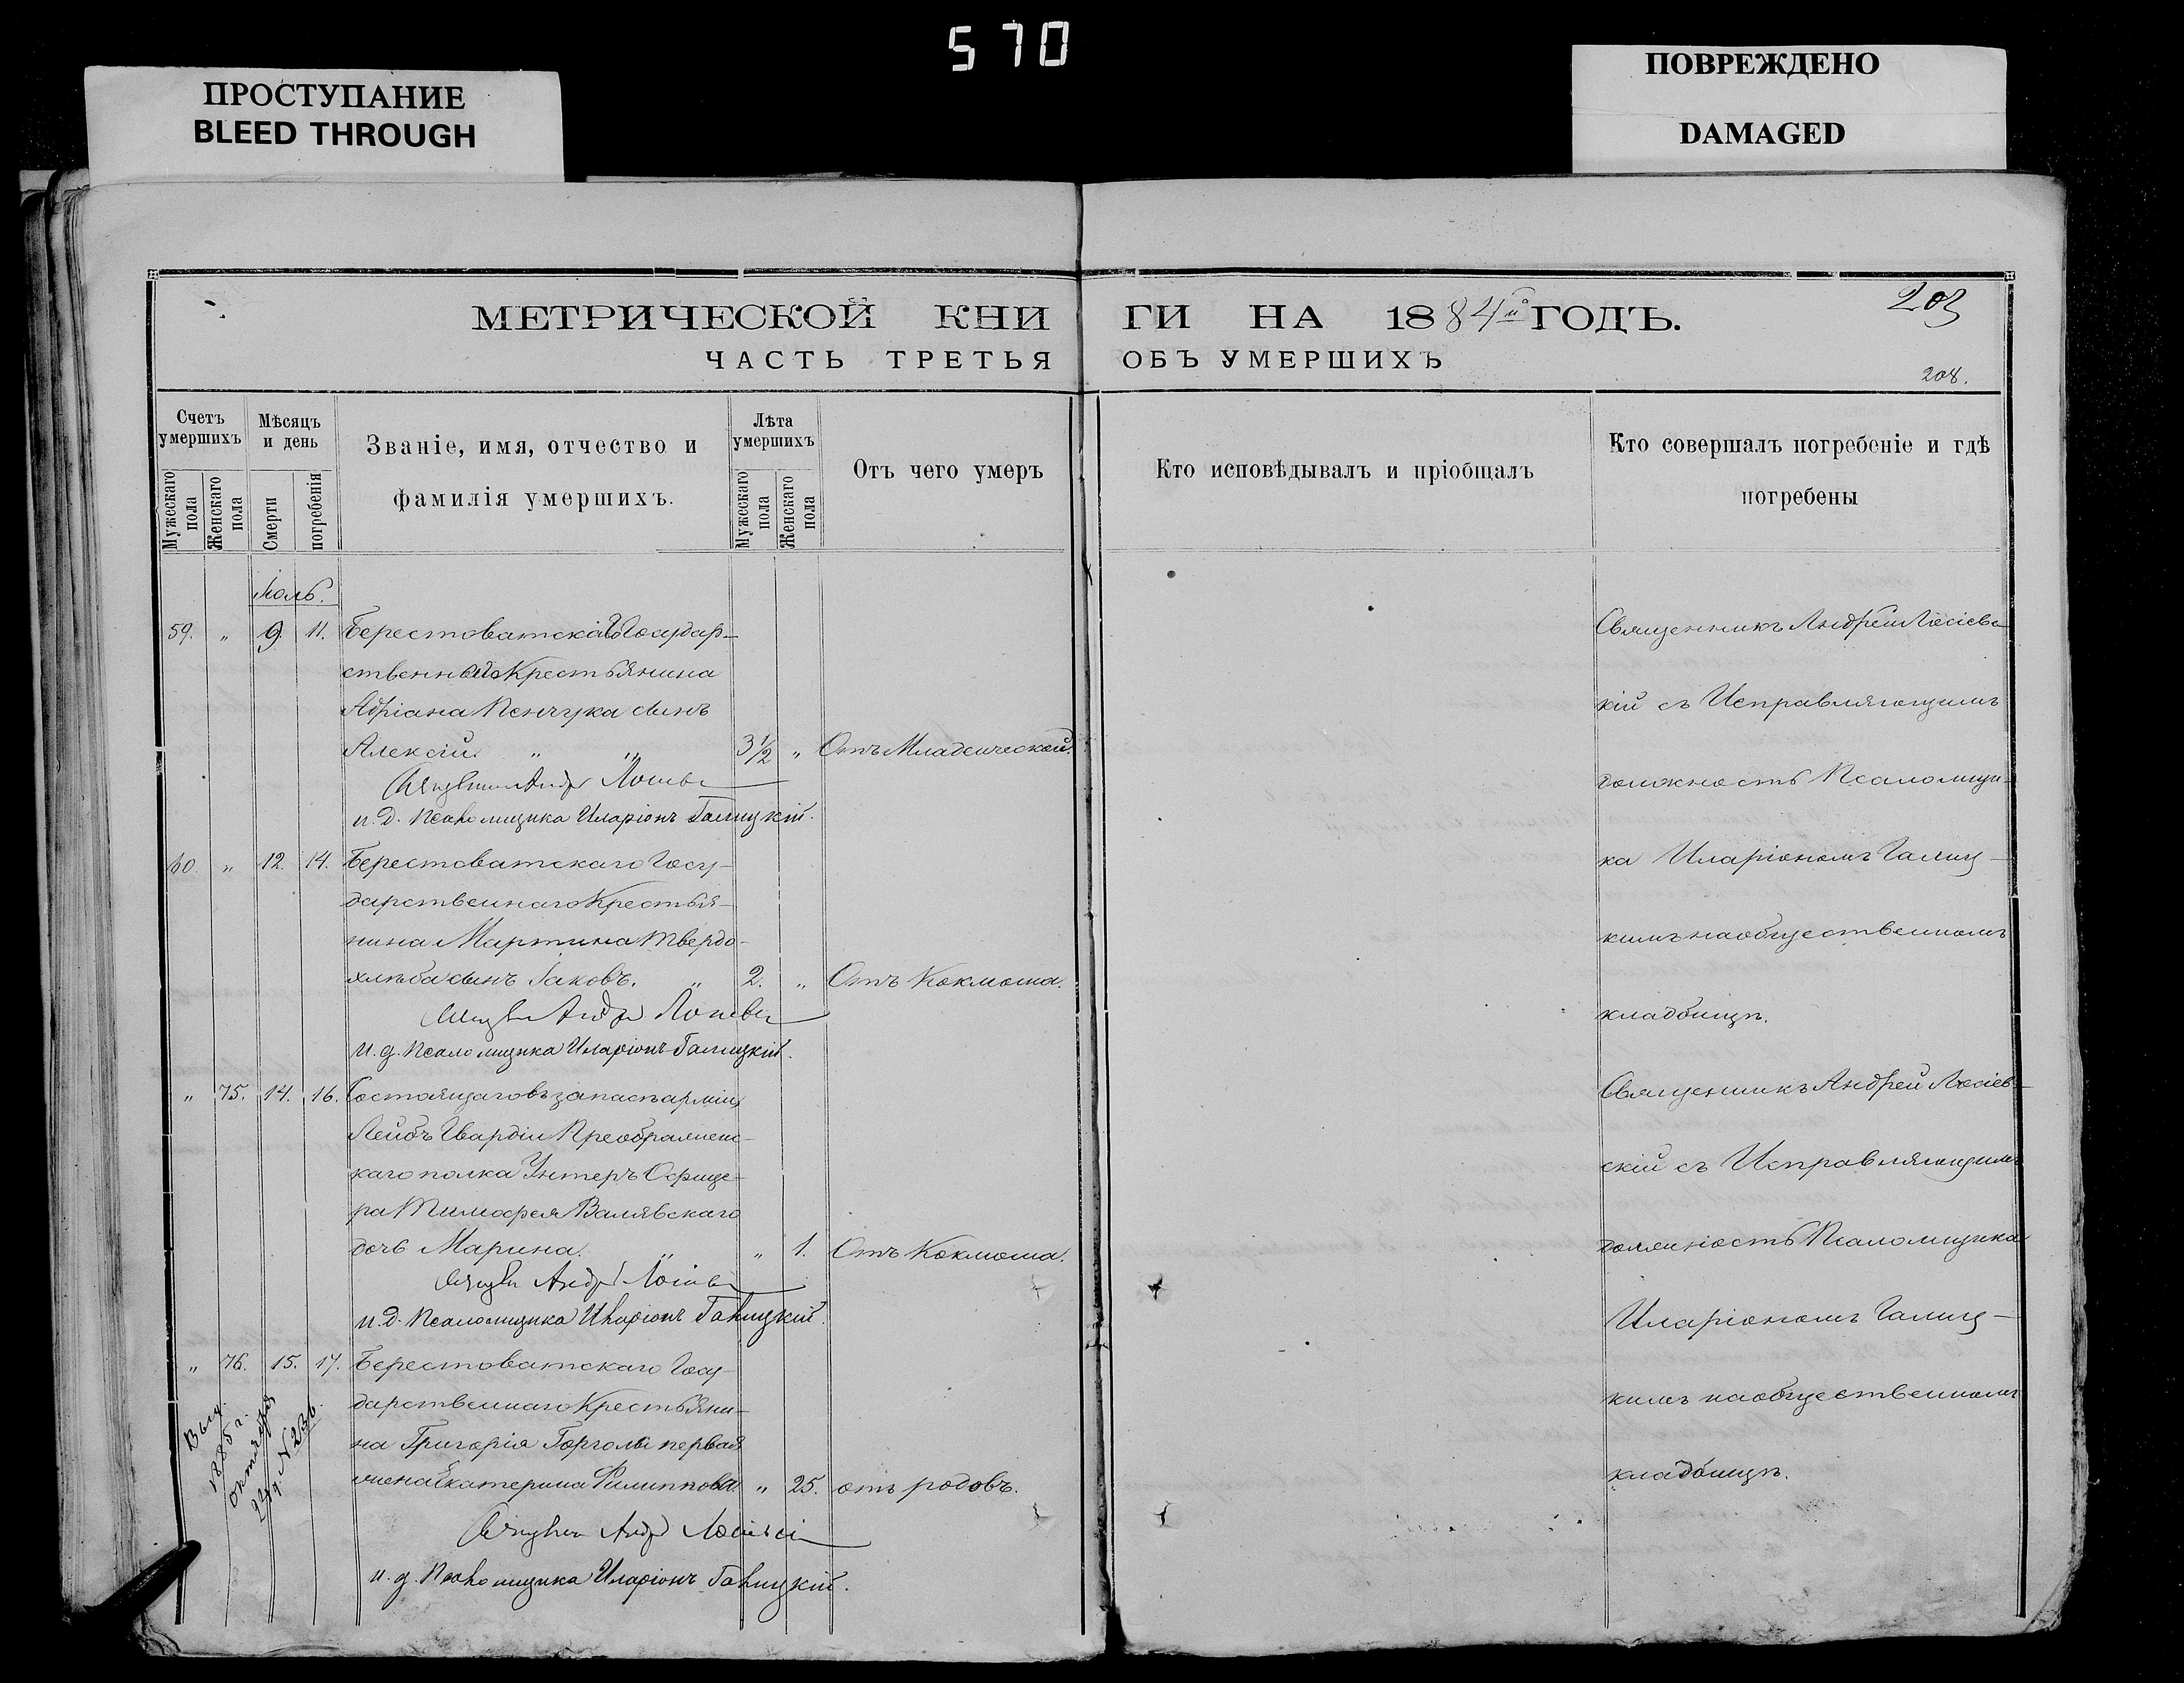 570
ПРОСТУПАНИЕ
BLEED THROUGH
ПОВРЕЖДЕНО
DAMAGED
МЕТРИЧЕСКОЙ КНИ ГИ НА 1884й ГОДЪ.
203
ЧАСТЬ ТРЕТЬЯ ОБЪ УМЕРШИХЪ
208.
Счетъ умершихъ
Мужескаго пола
Женскаго пола
Мѣсяцъ и день
Смерти
погребенія
Званіе, имя, отчество и
фамилія умершихъ.
Лѣта умершихъ
Мужескаго пола
Женскаго пола
Отъ чего умеръ
Кто исповѣдывалъ и пріобщалъ
Кто совершалъ погребеніе и гдѣ
погребены
Іюль.
59. " 9. 11. Берестоватскаго Государ-
ственнаго Крестьянина
Адріана сынъ
Алексій " " 3½ " Отъ Младенческой.
и. д. Псаломщика Иларіонъ Галицкій.
60. " 12. 14. Берестоватскаго Госу-
дарственнаго Крестья-
нина Мартина Твердо-
хлѣба сынъ Іаковъ. " 2. " Отъ Коклюша.
И. д. Псаломщика Иларіонъ Галицкій.
" 75. 14. 16. Состоящаго въ запасѣ арміи,
Лейбъ Гвардіи Преображенс-
каго полка Унтеръ Офице-
ра Тимофея Валявскаго
дочь Марина. " " 1. Отъ Коклюша.
и. д. Псаломщика Иларіонъ Галицкій.
" 76. 15. 17. Берестоватскаго Госу-
дарственнаго Крестьяни-
на Григорія первая
жена Екатерина Филиппова. " 25. отъ родовъ.
и. д. Псаломщика Иларіонъ Галицкій.
Выд.
1885 г.
октября
22 д. N 236.
Священникъ Андрей
кій съ Исправляющимъ
должность Псаломщи-
ка Иларіономъ Галиц-
кимъ на общественномъ
кладбищѣ.
Священникъ Андрей
скій съ Исправляющимъ
должность Псаломщика
Иларіономъ Галиц-
кимъ на общественномъ
кладбищѣ.